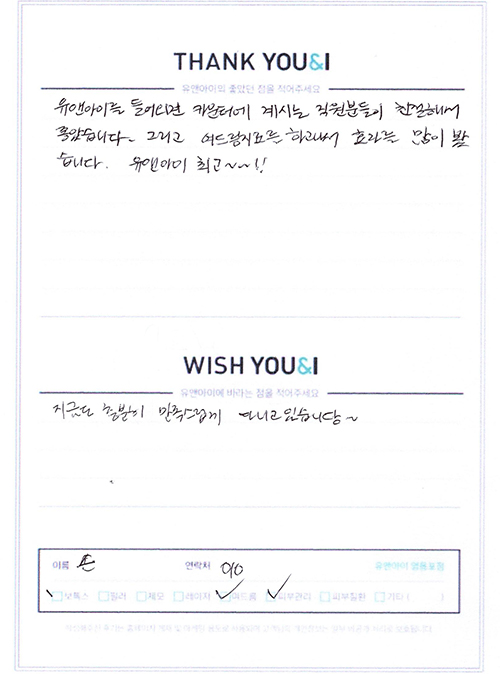 THANK YOU&I
유앤아이의 좋았던 점을 적어주세요
유앤아이를 들어오면 카운터에 계시는 직원분들이 친절해서
좋았습니다. 그리고 여드름치료를 하고나서 효과를 많이 봤
습니다. 유앤아이 최고~~!!
WISH YOU&I
유앤아이에 바라는 점을 적어주세요
지금도 충분히 만족스럽게 다니고있습니당~
이름 손 연락처 010 유앤아이 영등포점
보톡스 필러 제모 레이저 여드름 피부관리 피부질환 기타 ( )